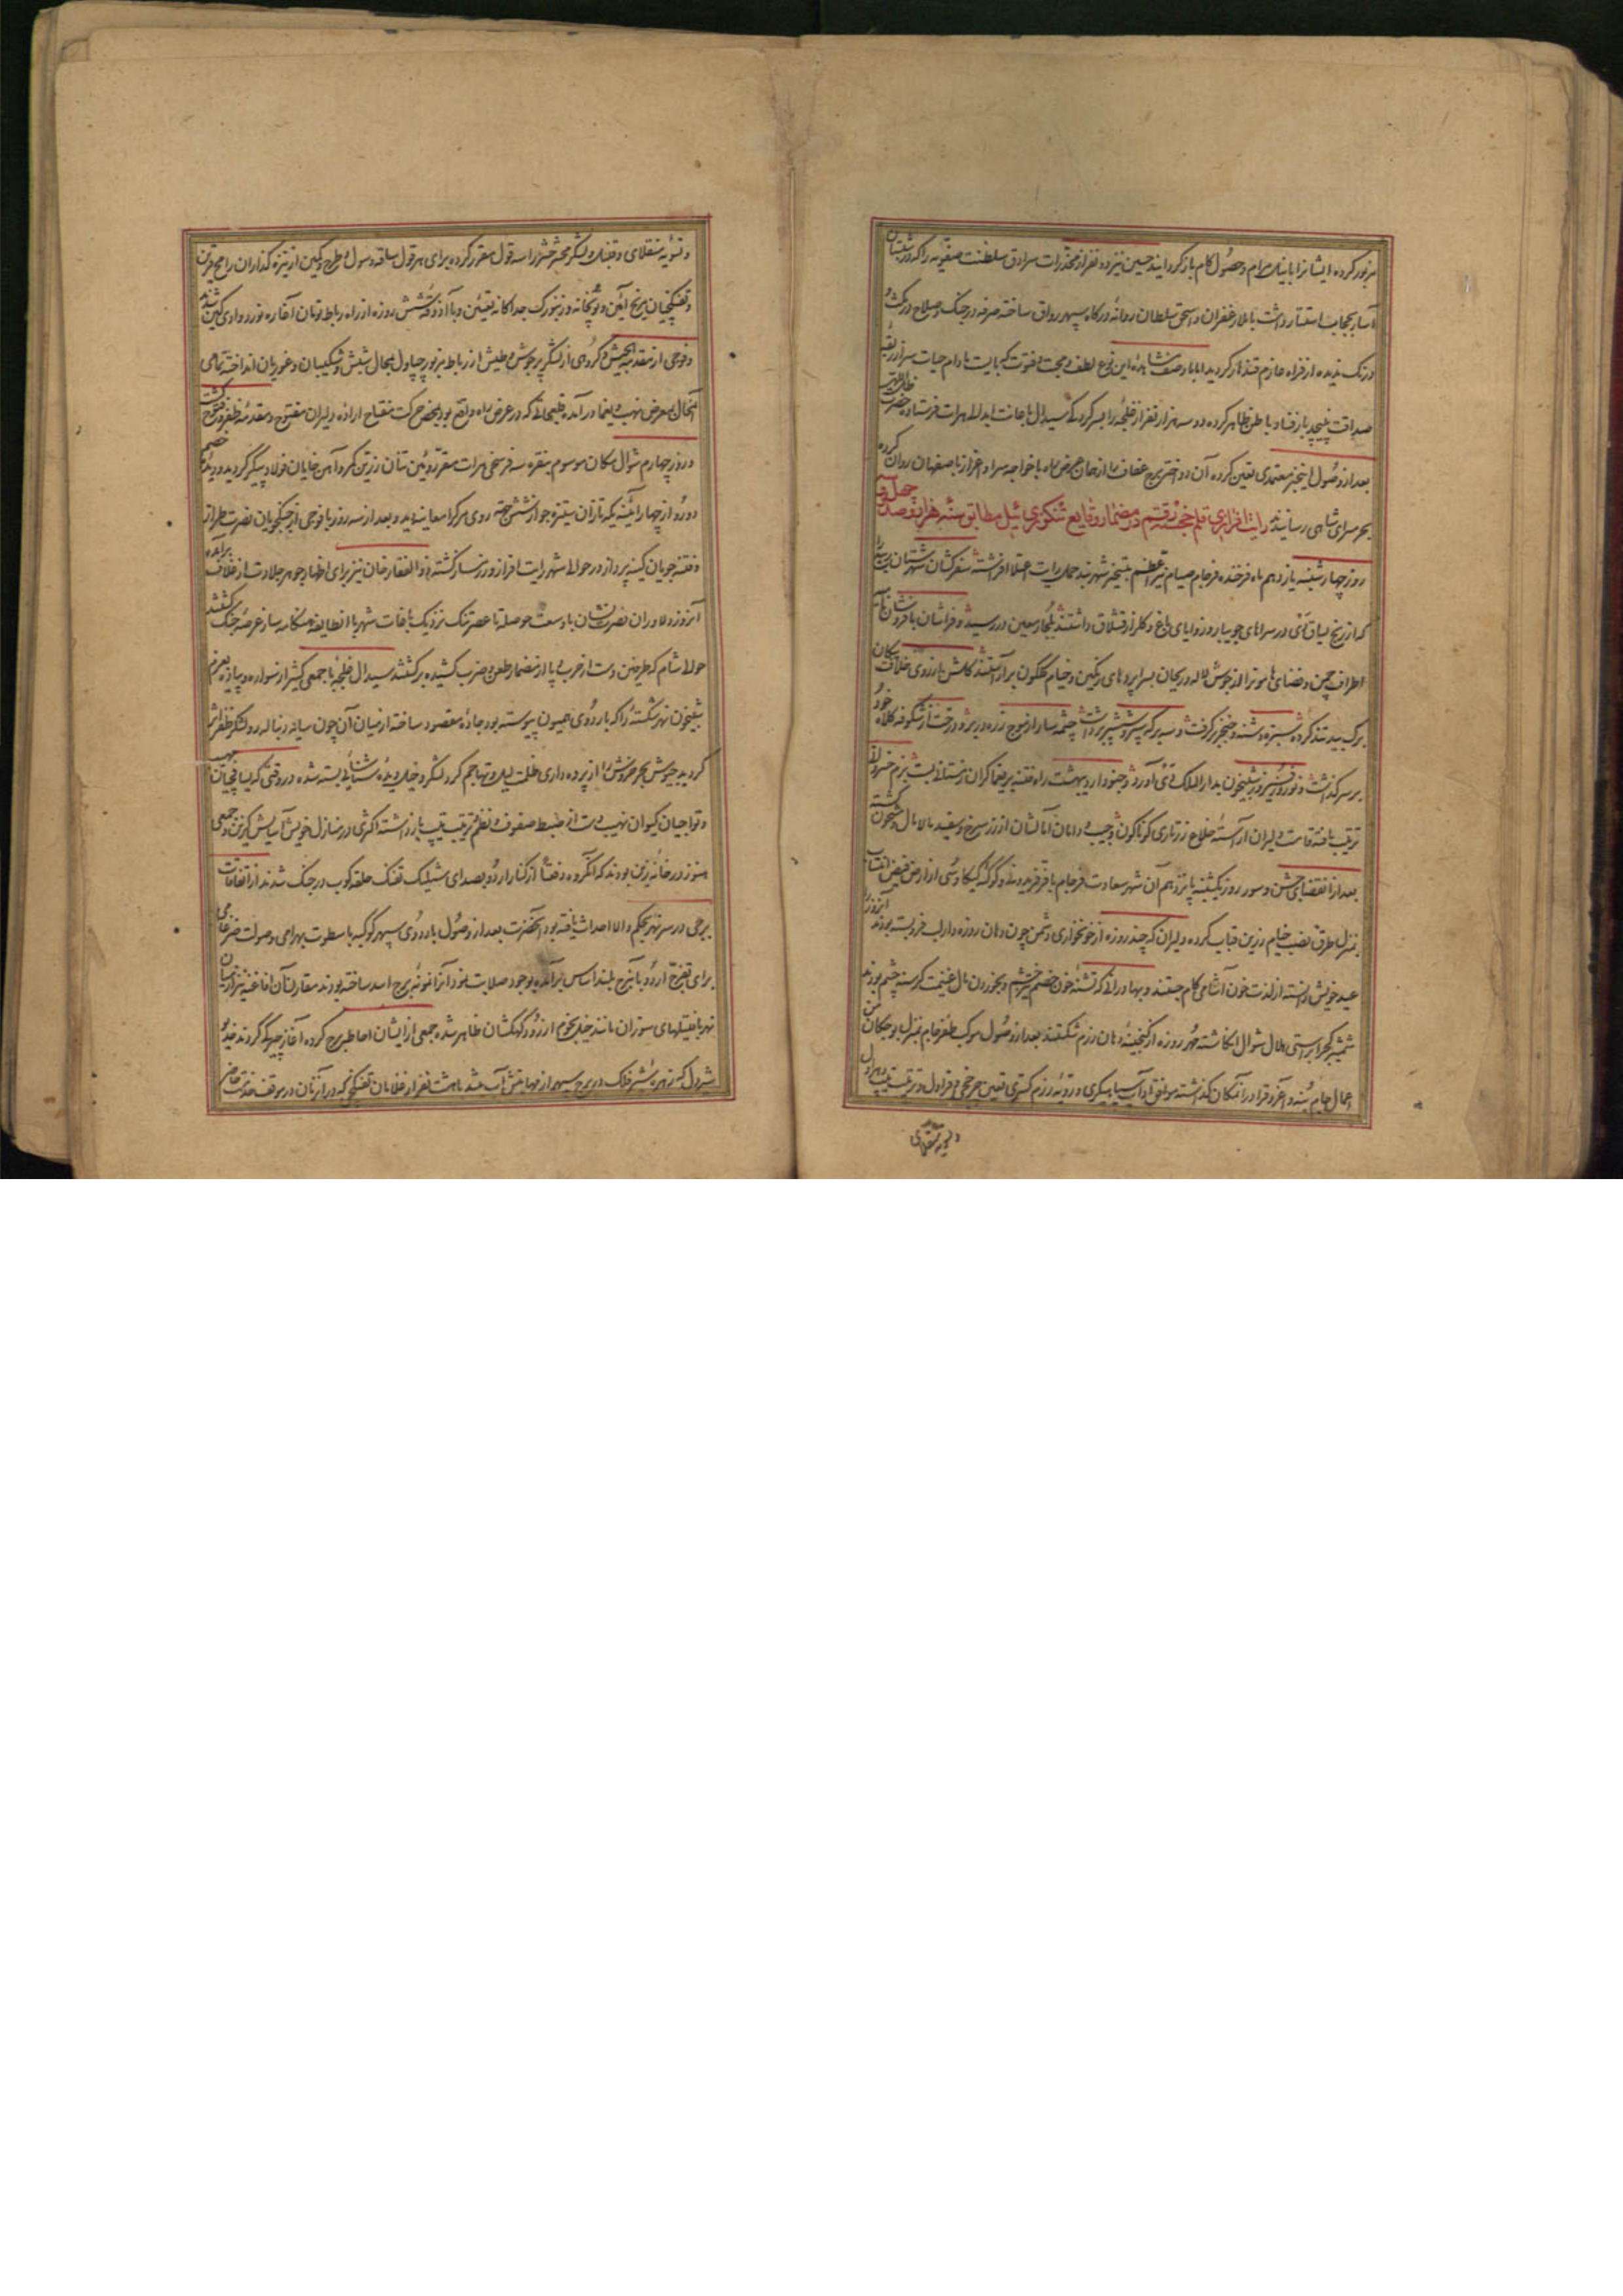 مزبور کرده ایشانرا بانیل مرام و حصول کام باز گردانید حسین نیز دو نفر از مخدرات سرادق سلطنت صفویه را که در شبستان
آسا بحجاب استتار داشت با ملا زعفران و اسحق سلطان روانه درگاه سپهر رواق ساخته صرفه در جنگ و صلاح در مکث و
درنگ ندیده از فراه عازم قندهار گردید اما با وصف مشاهده این نوع لطف و محبت و فتوت که بایست مادام حیات سر از ربقه
صداقت نپیچد باز فساد باطن ظاهر کرده دو سه هزار نفر از غلیجه را بسرکردگی سیدال باعانت ابدالی هرات فرستاده حضرت ظل اللهی
بعد از وصول اینخبر معتمدی تعین کرده آن دو اختر برج عفاف را از همان عرض راه با خواجه سرا و اعزاز باصفهان روان کرده
بحرمسرای شاهی رسانید رایت افرازی قلم خجسته رقم در مضمار وقایع تنکوزی ئیل مطابق سنه هزار و صد و چهل و سه
روز چهارشنبه یازدهم ماه فرخنده فرجام صیام نیر اعظم بتسخیر شهربند حمل رایت اعتلا افراشته سفرکشان شهرستان
که از رنج یساق دی در سراهای جویبار و زوایای باغ و گلزار قشلاق داشتند بلجار معین در رسید و فراشان بافر و شان
اطراف چمن و فضای هامون را از جوش لاله و ریحان بسراپرده های رنگین و خیام گلگون برآراستند گلشن بارزوی خلافت سکان
برگ بید تند کرده سبزه دشنه و خنجر برگرفت و سه برگه سپر و شش پر برداشت چشمه سار از موج زره در بر و درخت از شکوفه کلاه خود
بر سر گذاشت و نوروز فیروز بشبیخون بدار الملک دی آورد و جنود اردیبهشت راه فتنه بر یغماگران زمستانی بست بزم خسروانی
ترتیب یافته قامت دلیران آراسته خلاع زرتاری گوناگون و جیب و دامان آمالشان از زر سرخ و سفید مالامال و مشحون گشته
بعد از انقضای جشن و سور روز یکشنبه پانزدهم آن شهر سعادت فرجام با فر فریدونی و کوکبه کیکاوسی از ارض فیض انتساب
بمنزل طرق نصب خیام زرین قباب کرده دلیران که چند روزه از خونخواری دشمن چون دهان روزه دار لب فروبسته بودند آنروز را
عید خویش دانسته از لذت خون آشامی کام جستند و بهادرانی که تشنه خون خصم و بخوردن مال غنیمت گرسنه چشم بودند
شمشیر کج را براستی هلال شوال انگاشته مهر روزه از گنجینه دهان رزم شکستند بعد از وصول موکب ظفر فرجام بمنزل بوجکان من
اعمال جام بنه و آغروق را در آنمکان گذاشته موافق آداب سپاهیگری و رویه رزم گستری تعین چرخچی و قراول و ترتیب
و تسویه منقلای
و تسویه منقلای و قنبل و لشکر محشر حشر را سه قول مقرر کرده برای هر قول ساقه و سول و طرح و کمین از نیزه گذاران رامح قرین
و تفنگچیان مریخ آئین و توپخانه و زنبورک جداگانه تعیین و با آذوقه شش روزه از راه رباط تومان آغا ره نورد وادی کین شدند
و فوجی از مقدمه الجیش و گروهی از لشکر پرجوش و طیش از رباط مزبور بچپاول محال شبش و شکیبان و غوریان انداخته تمامی
آنمحال بمعرض نهب و یغما درآمده قلیجاتی که در عرض راه واقع بود بمحض حرکت مفتاح اراده دلیران مفتوح و مقدمه ظفر و فتوح گشت
و روز چهارم شوال مکان موسوم بنقره سه فرسخی هرات مقر روئین تنان زرین کمر و آهن خایان فولاد پیکر گردید و دیده خصم
دو رو از چهار آئینه یکه تازان ستیزه جو از شش جهه روی مرگ را معاینه دید و بعد از سه روز با فوجی از جنگجویان نصرت طراز
و فتنه جویان کینه پرداز در حوالی شهر رایت افراز ورزمساز گشته ذوالفقار خان نیز برای اظهار جوهر جلادت از غلاف برآمده
آنروز دلاوران نصرت نشان با وسعت حوصله تا عصر تنگ نزدیک بباغات شهر با انطایفه هنگامه ساز عرصه جنگ گشتند
حوالی شام که طرفین دست از حرب و پا از مضمار طعن و ضرب کشیده برگشتند سیدال غلیجه با جمعی کثیر از سواره و پیاده بعزم
شبیخون نهر شکسته را که باردوی همیون پیوسته بود جاده مقصود ساخته از میان آن چون سیاه دنباله رو لشکر ظفر اثر
گردید جیوش بحر خروش را از پرده داری ظلمت لیل و تهاجم گرد لشکر و خیل دیده شناسائی بسته شده در وقتی که یساولچیان مهیب
و تواچیان کیوان نهیب دست از ضبط صفوف و نظم ترتیب تیپ بازداشته اکثری در منازل خویش آسایش گزین و جمعی
هنوز در خانه زین بودند که آنگروه دفعة از کنار اردو بصدای شیلیک تفنگ حلقه کوب در جنگ شدند از اتفاقات
برجی در سر نهر بحکم والا احداث یافته بود آنحضرت بعد از وصول باردوی سپهر کوکبه با سطوت بهرامی و صولت ضرغامی
برای تفرج اردو بآنبرج بلند اساس برآمده بوجود صلابت نمود آنرا نمونه برج اسد ساخته بودند مقارن آن افاغنه نیز از میان
نهر با فتیلهای سوزان مانند خیل نجوم از رود کهکشان ظاهر شده جمعی از ایشان احاطه برج کرده آغاز چیرگی کردند خدیو
شیردل که زهره شیر فلک در برج سپهر از مهابتش آب میشد با هشت نفر از غلامان تفنگچی که در آنزمان در موقف خدمت حاضر